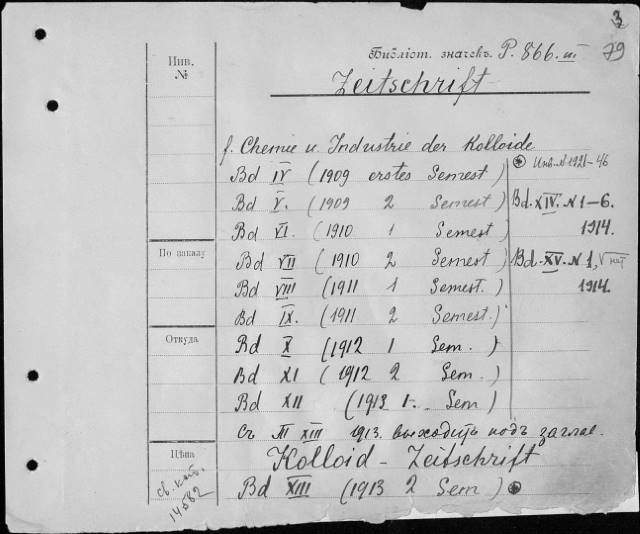 3
79
Инв.
№
Библіот. значекъ P. 866. III
Zeitschrift
f. Chemie u. Industrie der Kolloide
Bd IV (1909 erstes Semest)
Инв. N 1921-46
Bd V. (1909 2 Semest)
Bd. XIV. N 1-6.
Bd VI. (1910 1 Semest)
1914.
По заказу
Bd VII (1910 2 Semest)
Bd. XV. N 1,
Bd VIII (1911 1 Semest.)
1914.
Bd IX. (1911 2 Semest.)
Откуда
Bd X (1912 1 Sem.)
Bd XI (1912 2 Sem.)
Bd XII (1913 1. Sem)
Съ XIII 1913. выходитъ подъ заглав.
Цѣна
Kolloid - Zeitschrift
св. кат.
14582
Bd XIII (1913 2 Sem)